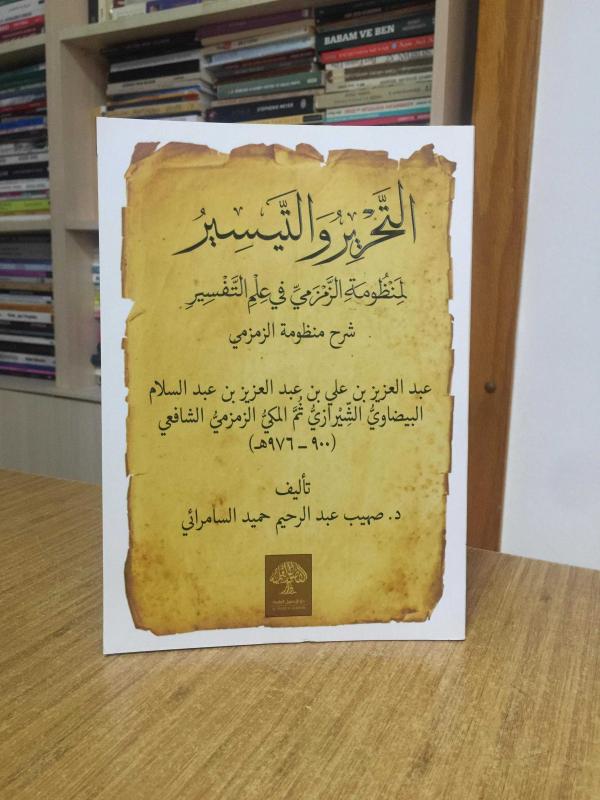 BABAM VE BEN
STEPHENIE MEYER
التَّحْرِيرُ وَالتَّيْسِيرُ
لِمَنْظُومَةِ الزَّمْزَمِيِّ فِي عِلْمِ التَّفْسِيرِ
شرح منظومة الزمزمي
عبد العزيز بن علي بن عبد العزيز بن عبد السلام
البيضاويُّ الشِّيْرازيُّ ثُمَّ المكيُّ الزمزميُّ الشافعي
(٩٠٠ – ٩٧٦هـ)
تأليف
د. صهيب عبد الرحيم حميد السامرائي